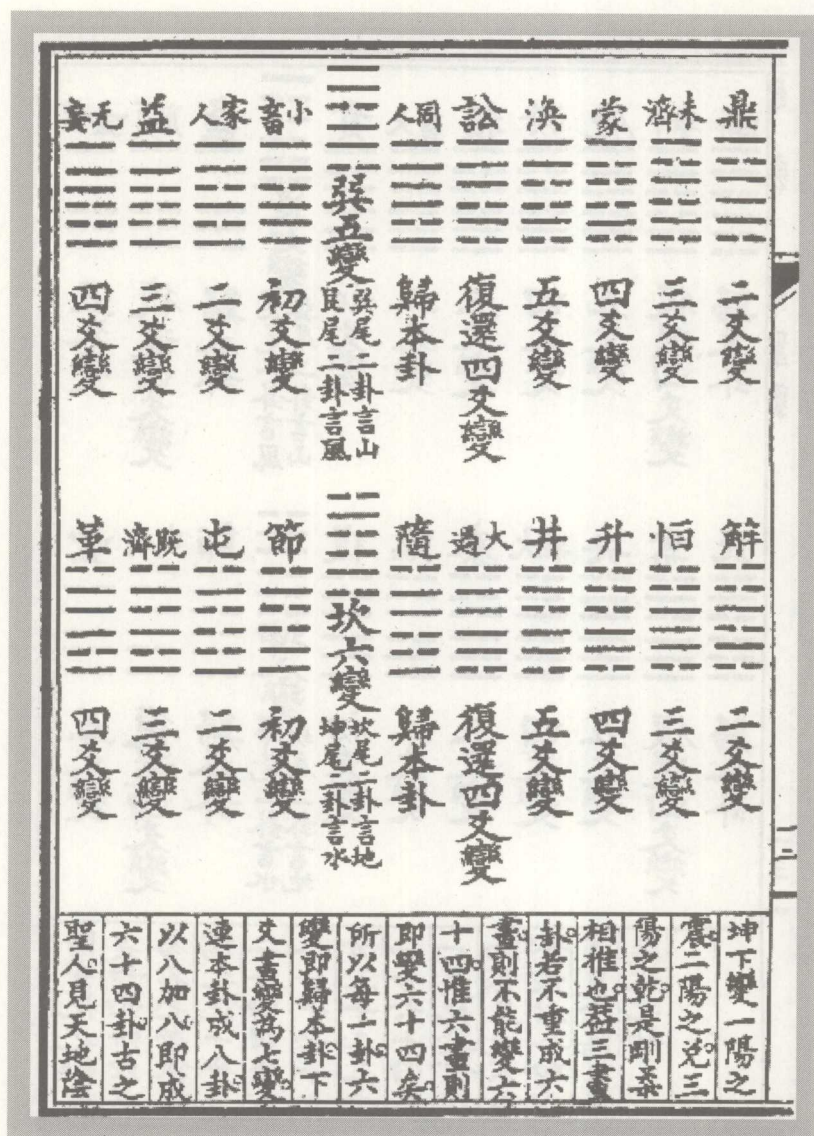 鼎 二爻變
未濟 三爻變
蒙 四爻變
渙 五爻變
訟 復還四爻變
同人 歸本卦
巽五變
巽尾二卦言山
艮尾二卦言風
小畜 初爻變
家人 二爻變
益 三爻變
无妄 四爻變
解 二爻變
恒 三爻變
升 四爻變
井 五爻變
大過 復還四爻變
隨 歸本卦
坎六變
坎尾二卦言地
坤尾二卦言水
節 初爻變
屯 二爻變
既濟 三爻變
革 四爻變
坤下變一陽之
震。二陽之兌。三
陽之乾。是剛柔
相推也。蓋三畫
卦。若不重成六
畫。則不能變六
十四。惟六畫則
即變六十四矣。
所以每一卦六
變。即歸本卦。下
爻畫變為七變。
連本卦成八卦。
以八加八。即成
六十四卦。古之
聖人。見天地陰